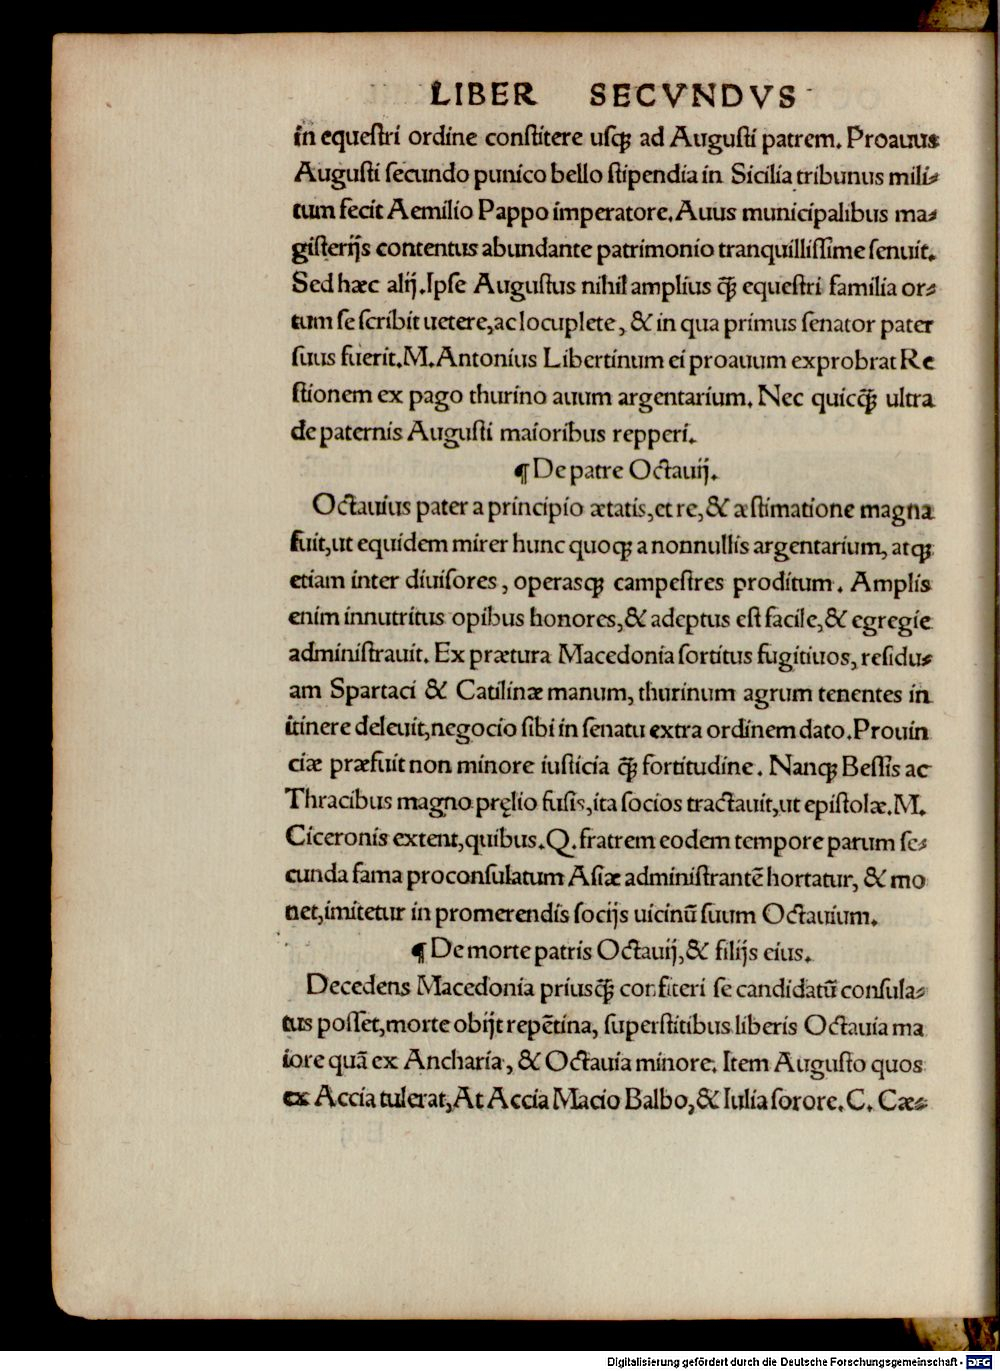 LIBER SECVNDVS
in equeſtri ordine conſtitere uſq; ad Auguſti patrem. Proauus
Auguſti ſecundo punico bello ſtipendia in Sicilia tribunus mili⸗
tum fecit Aemilio Pappo imperatore. Auus municipalibus ma⸗
giſterijs contentus abundante patrimonio tranquilliſſime ſenuit.
Sed hæc alij. Ipſe Auguſtus nihil amplius q̃ꝫ equeſtri familia or⸗
tum ſe ſcribit uetere, ac locuplete, & in qua primus ſenator pater
ſuus fuerit. M. Antonius Libertinum ei proauum exprobrat Re
ſtionem ex pago thurino auum argentarium. Nec quicq̃ꝫ ultra
de paternis Auguſti maioribus repperi.
¶ De patre Octauij.
Octauius pater a principio ætatis, et re, & æſtimatione magna
fuit, ut equidem mirer hunc quoq; a nonnullis argentarium, atq;
etiam inter diuiſores, operasq; campeſtres proditum. Amplis
enim innutritus opibus honores, & adeptus eſt facile, & egregie
adminiſtrauit. Ex prætura Macedonia ſortitus fugitiuos, reſidu⸗
am Spartaci & Catilinæ manum, thurinum agrum tenentes in
itinere deleuit, negocio ſibi in ſenatu extra ordinem dato. Prouin
ciæ præfuit non minore iuſticia q̃ꝫ fortitudine. Nanq; Beſſis ac
Thracibus magno pręlio fuſis, ita ſocios tractauit, ut epiſtolæ. M.
Ciceronis extent, quibus. Q. fratrem eodem tempore parum ſe⸗
cunda fama proconſulatum Aſiæ adminiſtrantẽ hortatur, & mo
net, imitetur in promerendis ſocijs uicinũ ſuum Octauium.
¶ De morte patris Octauij, & filijs eius.
Decedens Macedonia priusq̃ꝫ confiteri ſe candidatũ conſula⸗
tus poſſet, morte obijt repẽtina, ſuperſtitibus liberis Octauia ma
iore quã ex Ancharia, & Octauia minore. Item Auguſto quos
ex Accia tulerat, At Accia Macio Balbo, & Iulia ſorore. C. Cæ⸗
Digitalisierung gefördert durch die Deutsche Forschungsgemeinschaft - DFG